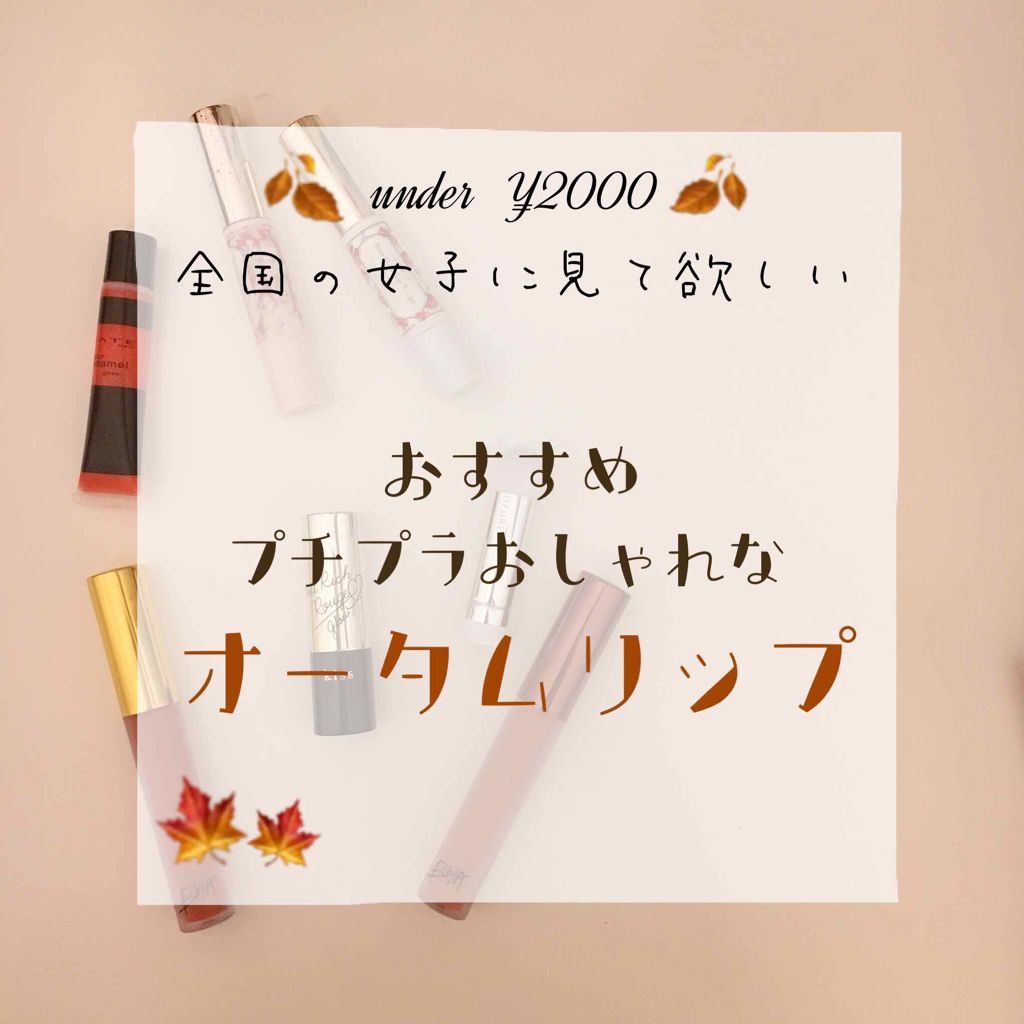 under ¥2000
全国の女子に見て欲しい
おすすめ
プチプラおしゃれな
オータムリップ
ATE
enamel
Rich
Rouge
Glow
KISS
BbIA
BbIA